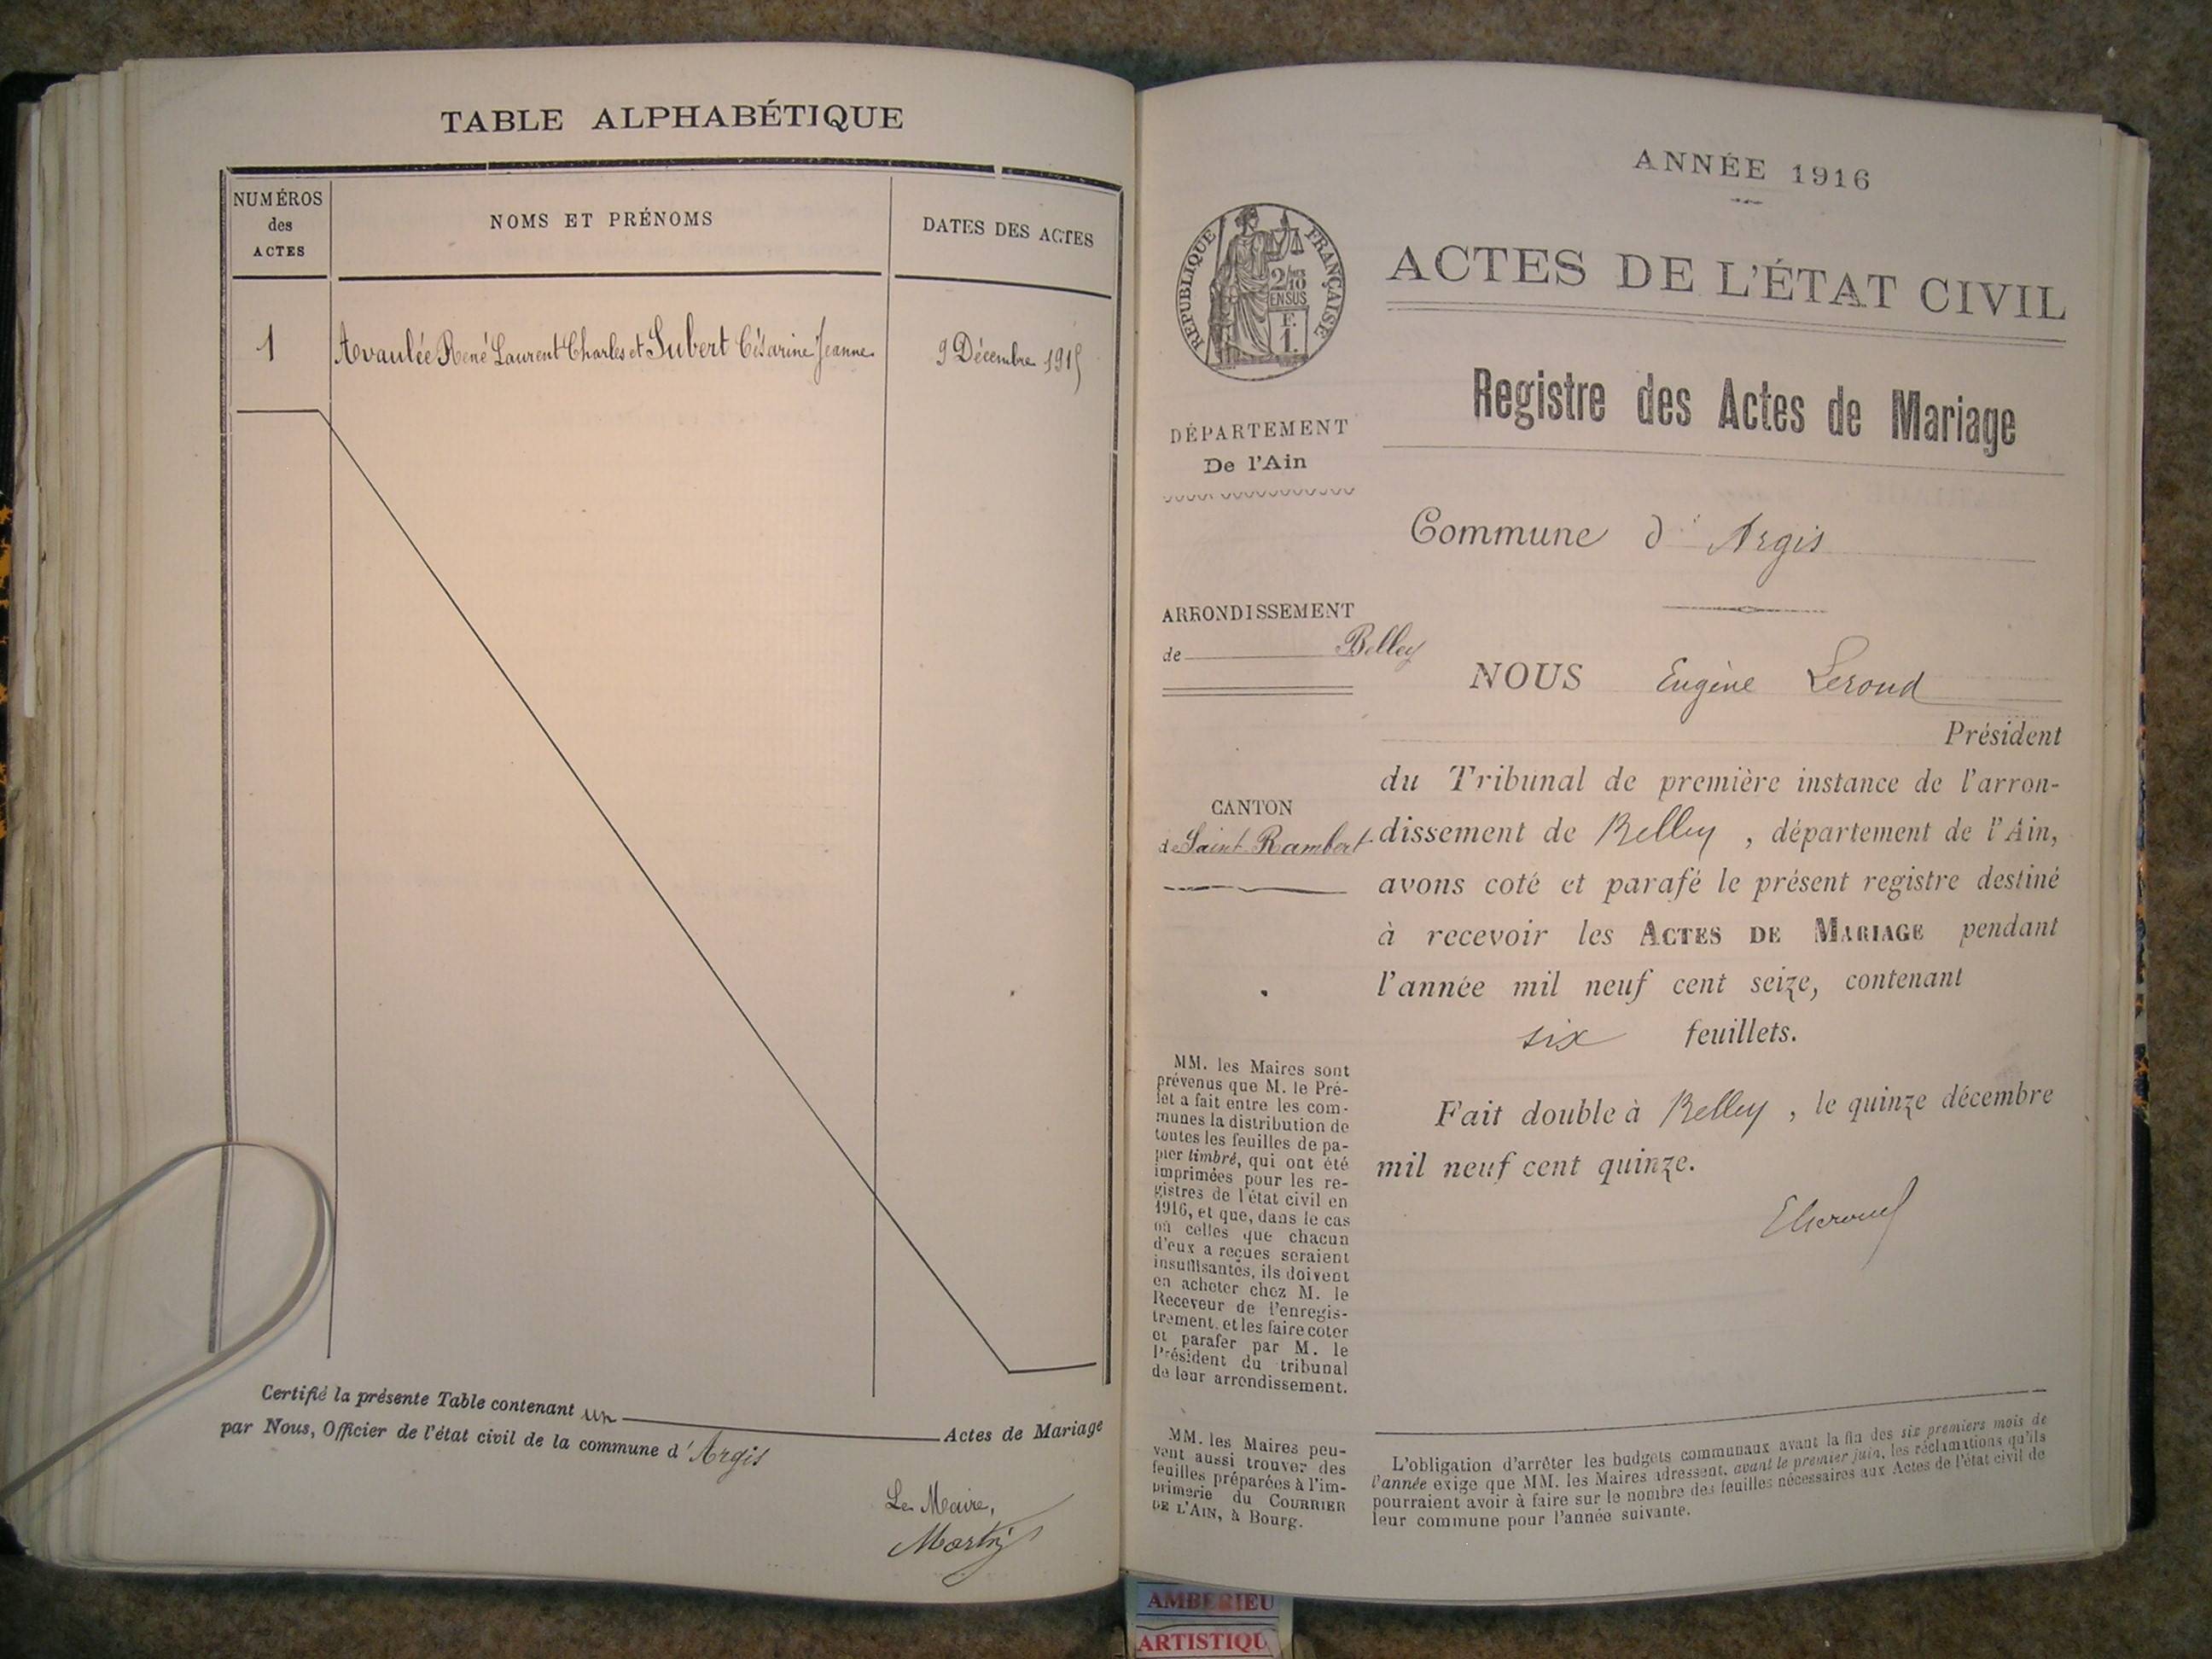 TABLE ALPHABÉTIQUE
NUMÉROS
des
ACTES
NOMS ET PRÉNOMS
DATES DES ACTES
1
René Laurent Charles et Subert Césarine Jeanne
9 Décembre 1915
Certifié la présente Table contenant un Actes de Mariage
par Nous, Officier de l'état civil de la commune d'Argis
Le Maire,
ANNÉE 1916
RÉPUBLIQUE FRANÇAISE
2/10
EN SUS
F.
1.
ACTES DE L'ÉTAT CIVIL
Registre des Actes de Mariage
DÉPARTEMENT
De l'Ain
Commune d'Argis
ARRONDISSEMENT
de Belley
NOUS Eugène Leroud
Président
du Tribunal de première instance de l'arron-
dissement de Belley, département de l'Ain,
avons coté et parafé le présent registre destiné
à recevoir les ACTES DE MARIAGE pendant
l'année mil neuf cent seize, contenant
six feuillets.
Fait double à Belley, le quinze décembre
mil neuf cent quinze.
CANTON
de Saint-Rambert
MM. les Maires sont
prévenus que M. le Pré-
fet a fait entre les com-
munes la distribution de
toutes les feuilles de pa-
pier timbré, qui ont été
imprimées pour les re-
gistres de l'état civil en
1916, et que, dans le cas
où celles que chacun
d'eux a reçues seraient
insuffisantes, ils doivent
en acheter chez M. le
Receveur de l'enregis-
trement, et les faire coter
et parafer par M. le
Président du tribunal
de leur arrondissement.
MM. les Maires peu-
vent aussi trouver des
feuilles préparées à l'im-
primerie du COURRIER
DE L'AIN, à Bourg.
L'obligation d'arrêter les budgets communaux avant la fin des six premiers mois de
l'année exige que MM. les Maires adressent, avant le premier juin, les réclamations qu'ils
pourraient avoir à faire sur le nombre des feuilles nécessaires aux Actes de l'état civil de
leur commune pour l'année suivante.
AMBERIEU
ARTISTIQU